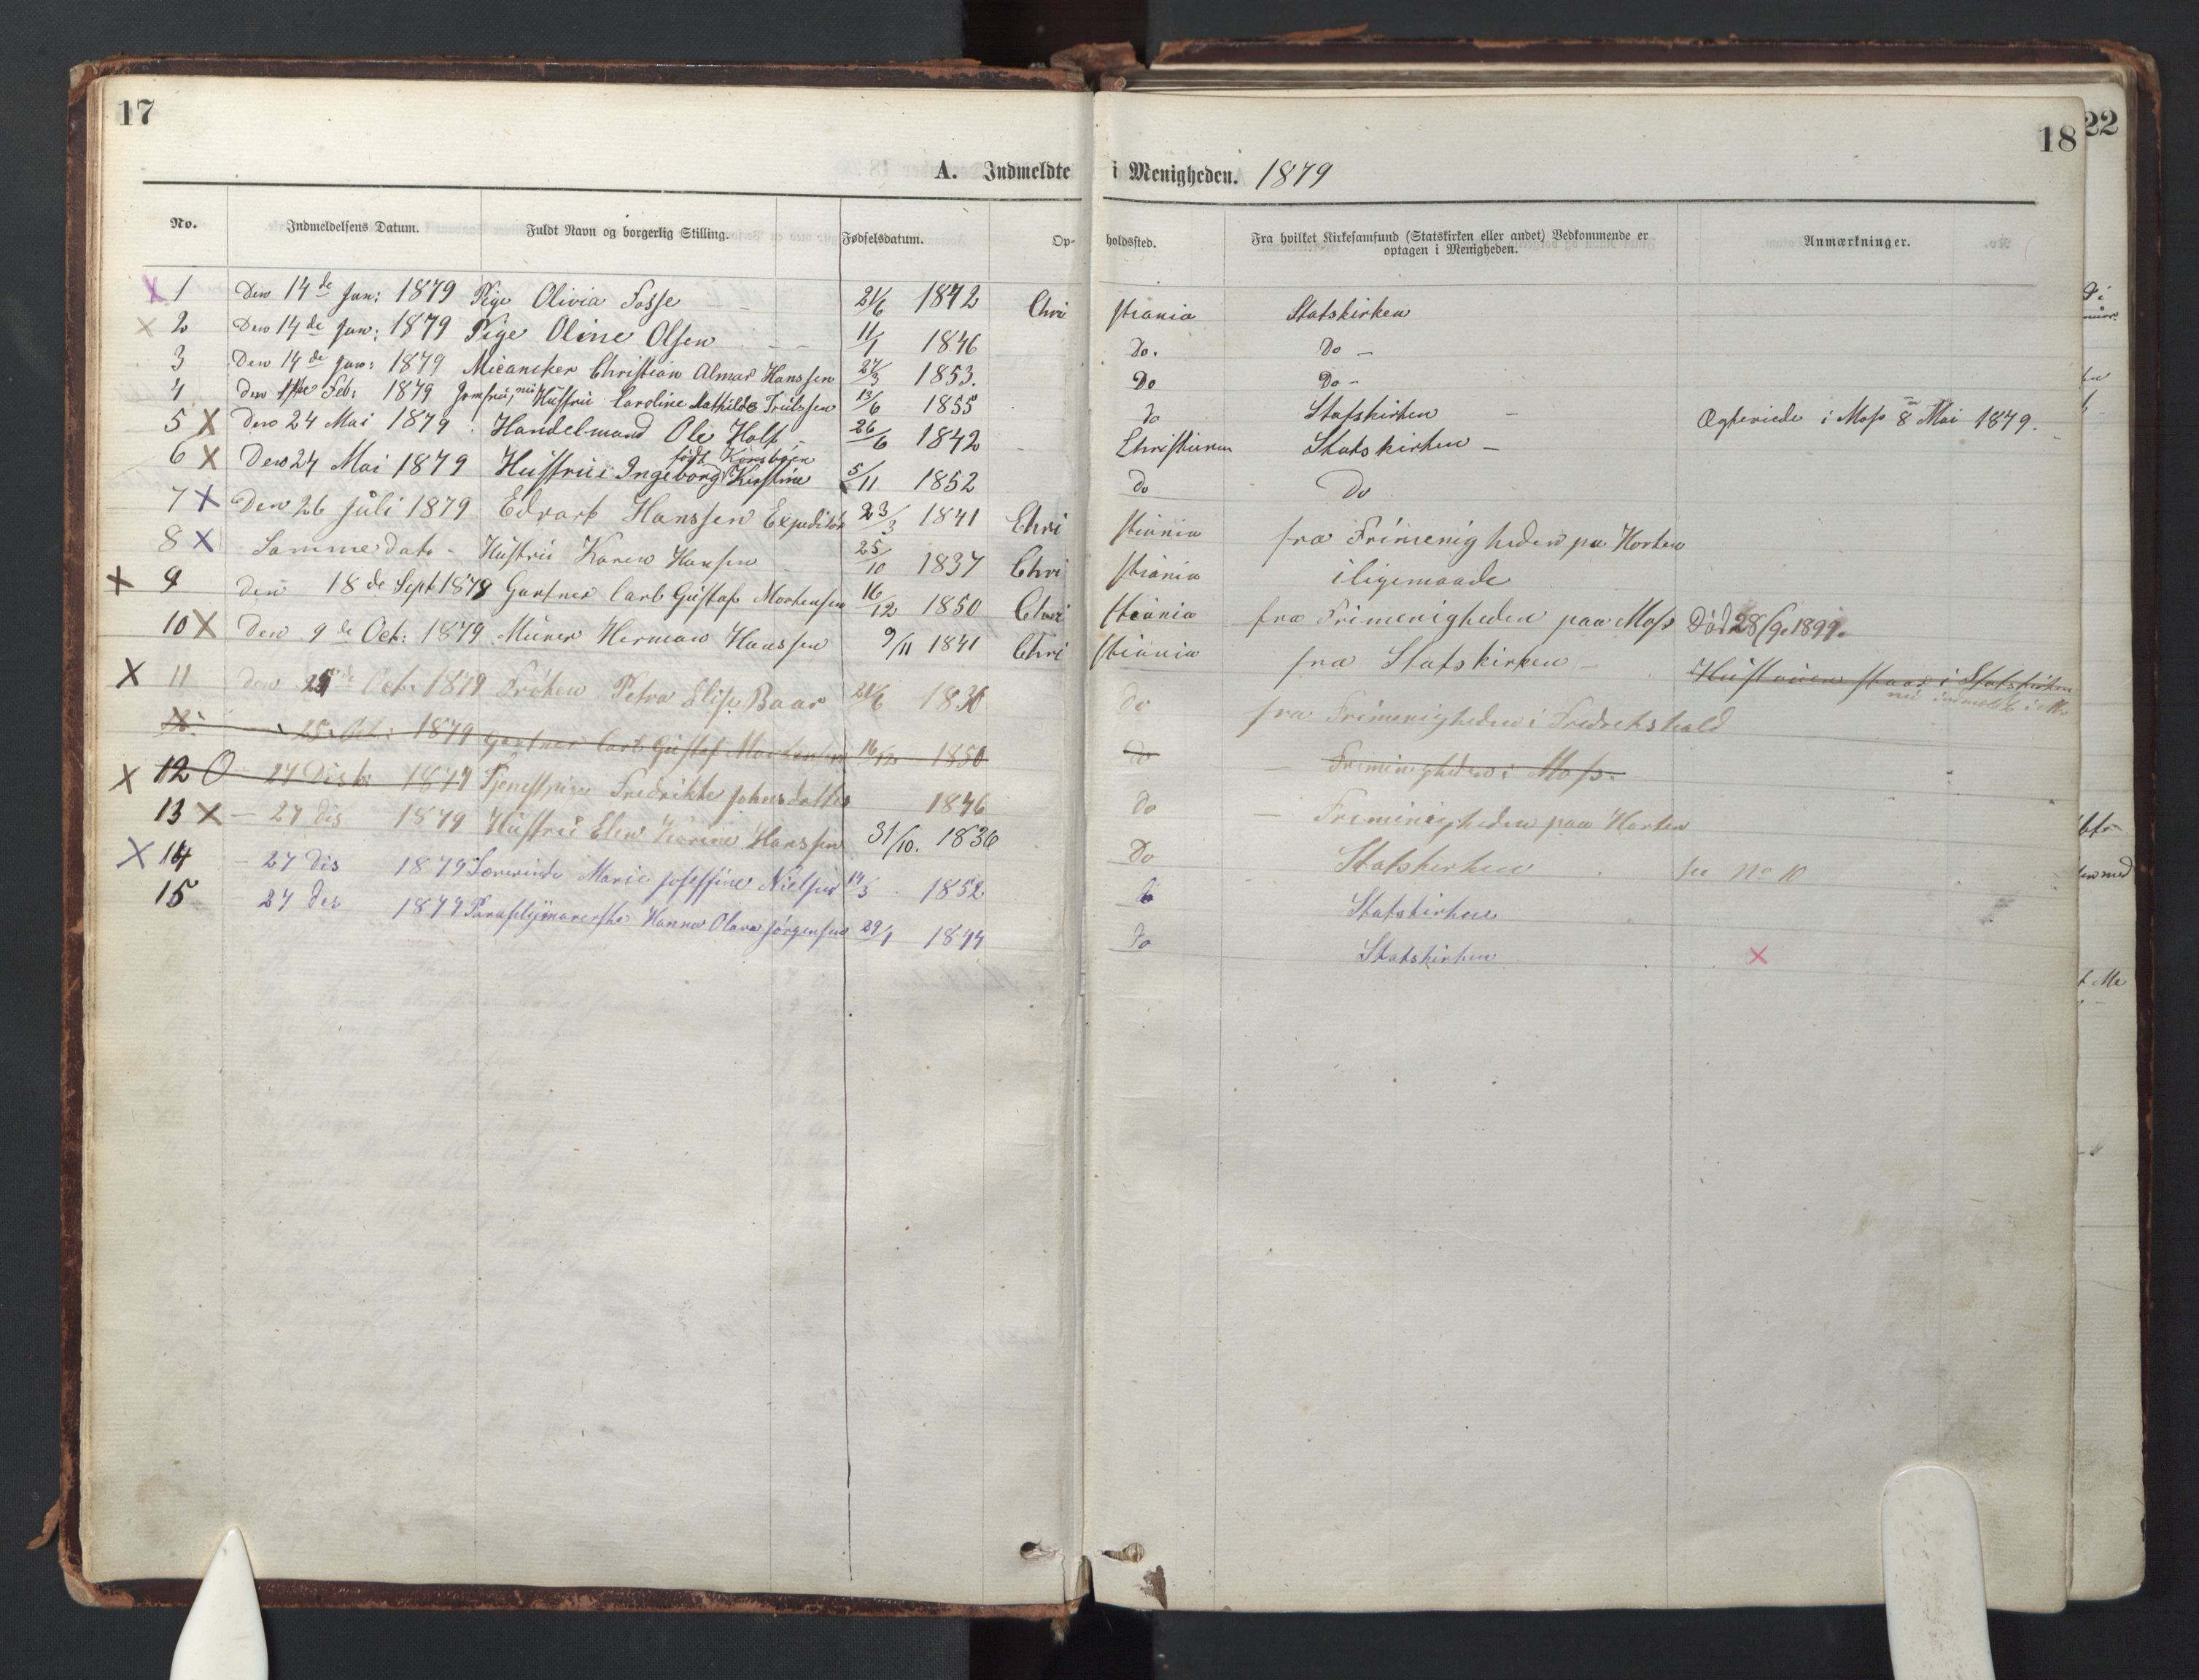 17
18
22
A. Indmeldte i Menigheden. 1879
No. Indmeldelsens Datum. Fuldt Navn og borgerlig Stilling. Fødselsdatum. Opholdssted. Fra hvilket Kirkesamfund (Statskirken eller andet) Vedkommende er optagen i Menigheden. Anmærkninger.
X 1 Den 14de Jan: 1879 Pige Olivia Fosse 21/6 1842 Christiania Statskirken
X 2 Den 14de Jan: 1879 Pige Oline Olsen 11/1 1846 Do. Do –
3 Den 14de Jan: 1879 Christian Almar Hanssen 24/3 1853. Do Do –
4 den Feb: 1879 Jomfru, nu Hustru Caroline Mathilde Trulssen 13/6 1855 do Statskirken – Ægteviede i Moss 8 Mai 1879.
5 X Den 24 Mai 1879 Handelmand Ole Holt 26/6 1842 Christiania Statskirken –
6 X Den 24 Mai 1879 Hustru Ingeborg Kirstine født 5/11 1852 do Do
7 X Den 26 Juli 1879 Edvart Hanssen Expeditør 23/3 1841 Christiania fra Frimenigheden pa Horten
8 X Samme dato – Hustru Karen Hansen 25/10 1837 Christiania iligemaade
X 9 den 18de Sept 1879 Gartner Carl Gustaf Mortensen 16/12 1850 Christiania fra Frimenigheden paa Moss Død 28/9. 1899.
10 X Den 9de Oct: 1879 Murer Herman Hanssen 9/11 1841 Christiania fra Statskirken – Hustruen staar i Statskirken
X 11 den 25de Oct. 1879 Frøken Petra Elise Baar 21/6 1830 do fra Frimenigheden i Fredrikshald
25 Oct: 1879 Gartner Carl Gustaf Mortensen 16/12 1850 do – Frimenigheden i Moss.
X 12 O – 27 Disb: 1879 Tjenestpige Fredrikke Johnsdatter 1846 do – Frimenigheden paa Horten
13 X – 27 Dis 1879 Hustru Elen Karine Hanssen 31/10. 1836 Do Statskirken see No 10
X 14 – 27 Dis 1879 Lærerinde Marie Josefine Nielsen 14/3 1852 do Statskirken
15 – 27 Des 1879 Hanna Olava Jørgensen 29/1 1844 do Statskirken X